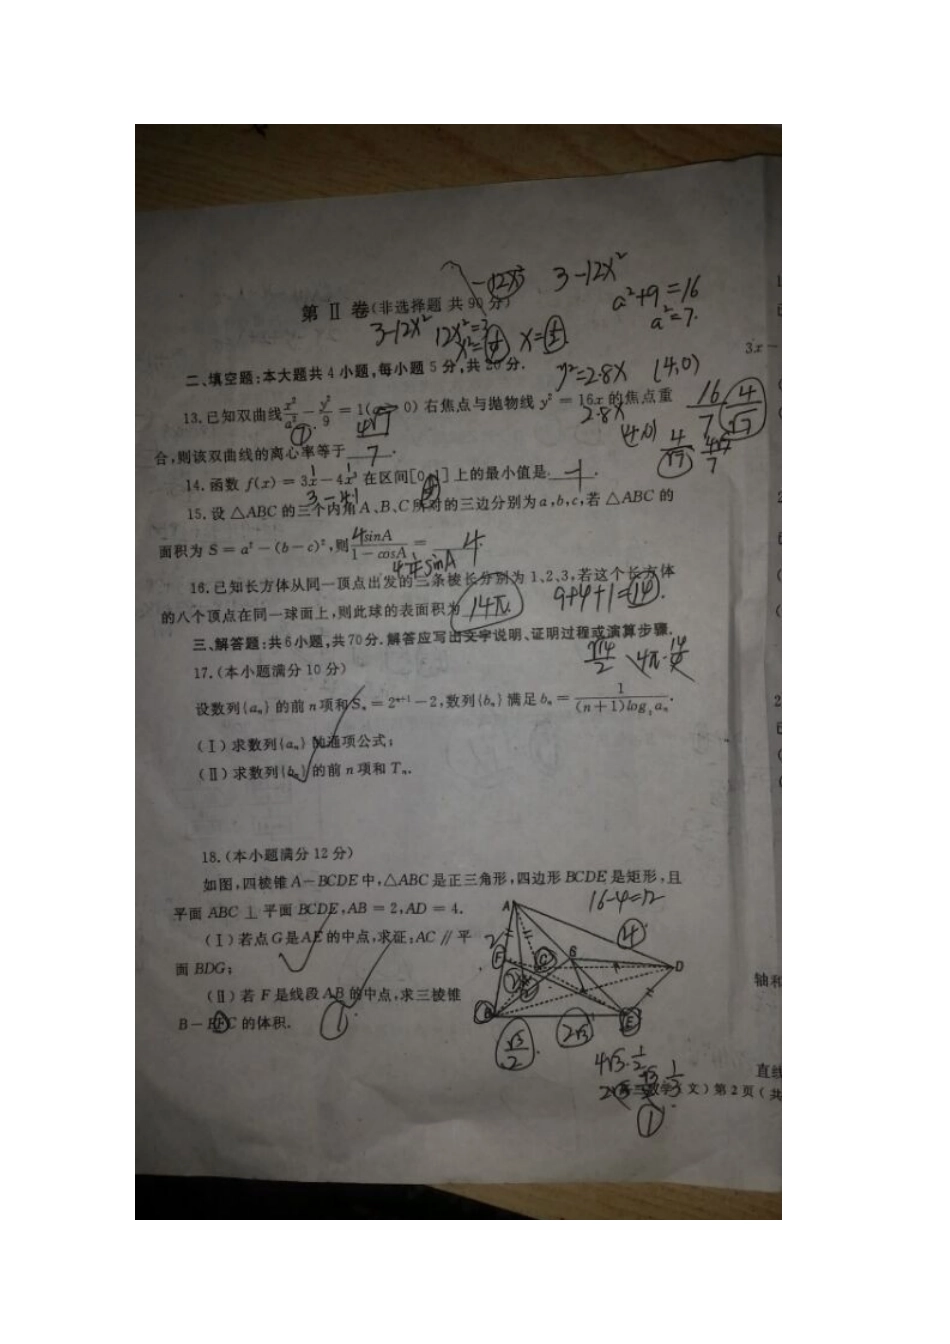 -12x² 3-12x²
a²+9=16
第 Ⅱ 卷(非选择题 共90分)
a²=7.
3-12x² 12x²=3
x=
3x-
二、填空题:本大题共4小题,每小题5分,共20分.
y²=2·8x (4,0)
13.已知双曲线x²/a²-y²/9=1(a>0)右焦点与抛物线y²=16x的焦点重
2·8x
(4,0)
16/7 4/√7
4/√7 4√7/7
合,则该双曲线的离心率等于 4√7/7 .
14.函数 f(x)=3x-4x³在区间[0,1]上的最小值是 -1 .
3-4·1
15.设 △ABC 的三个内角 A、B、C 所对的三边分别为a,b,c,若 △ABC 的
面积为 S=a²-(b-c)²,则 sinA/(1-cosA) = 4 .
16.已知长方体从同一顶点出发的三条棱长分别为1、2、3,若这个长方体
9+4+1=14.
的八个顶点在同一球面上,则此球的表面积为 14π.
三、解答题:共6小题,共70分.解答应写出文字说明、证明过程或演算步骤.
√14/2 4π·14/4
17.(本小题满分10分)
设数列{aₙ}的前n项和Sₙ=2ⁿ⁺¹-2,数列{bₙ}满足bₙ=1/((n+1)log₂aₙ).
(Ⅰ)求数列{aₙ}的通项公式;
(Ⅱ)求数列{bₙ}的前n项和Tₙ.
18.(本小题满分12分)
如图,四棱锥A-BCDE中,△ABC是正三角形,四边形BCDE是矩形,且
16-4=12
平面 ABC ⊥ 平面 BCDE,AB=2,AD=4.
A
(Ⅰ)若点G是AE的中点,求证:AC∥平
4
2
F G D
面 BDG;
(Ⅱ)若 F 是线段 AB 的中点,求三棱锥
B E
B-EFC 的体积.
1
√3/2 2√3
4√3·1/2
直线
高三数学(文)第2页(共
1
轴和